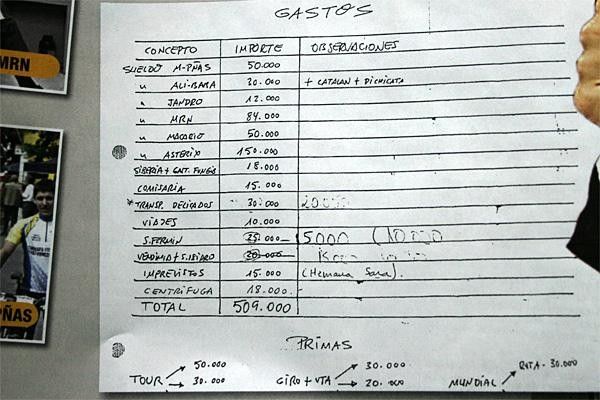 GASTOS
CONCEPTO IMPORTE OBSERVACIONES
SUELDO M-PÑAS 50.000
" ALI-BABA 30.000 + CATALAN + PICHICATA
" JANDRO 12.000
" MRN 84.000
" MACARIO 50.000
" ASTERIX 150.000
SIBERIA + 18.000
COMISARIA 15.000
* TRANSP. DELICADOS 30.000
VIAJES 10.000
S. FERMIN 25.000 5000
VENDIMIA + S. ISIDRO 20.000
IMPREVISTOS 15.000 (Hemana Sara).
CENTRIFUGA 18.000
TOTAL 509.000
PRIMAS
TOUR 50.000
30.000
GIRO + VTA 30.000
20.000
MUNDIAL RUTA - 30.000
MRN
PÑAS